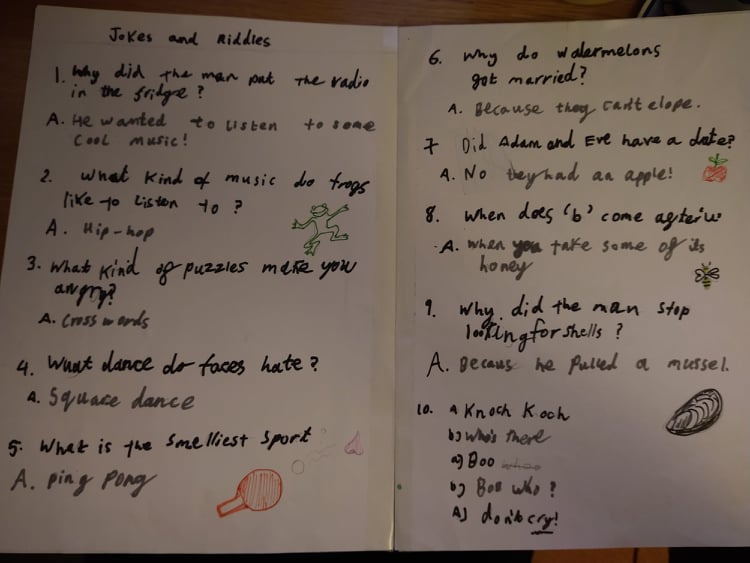 Jokes and Riddles
1. Why did the man put the radio
in the fridge?
A. He wanted to Listen to some
cool music!
2. What kind of music do frogs
like to Listen to?
A. Hip-hop
3. What kind of puzzles make you
angry?
A. Cross words
4. What dance do faces hate?
A. Square dance
5. What is the smelliest sport
A. ping pong
6. Why do watermelons
got married?
A. Because they can't elope.
7 Did Adam and Eve have a date?
A. No they had an apple!
8. When does 'b' come after 'u'
A. when you take some of its
honey
9. Why did the man stop
looking for shells?
A. Becaus he pulled a mussel.
10. a Knoch Koch
b) Who's there
a) Boo whoo
b) Boo who?
A) don't cry!